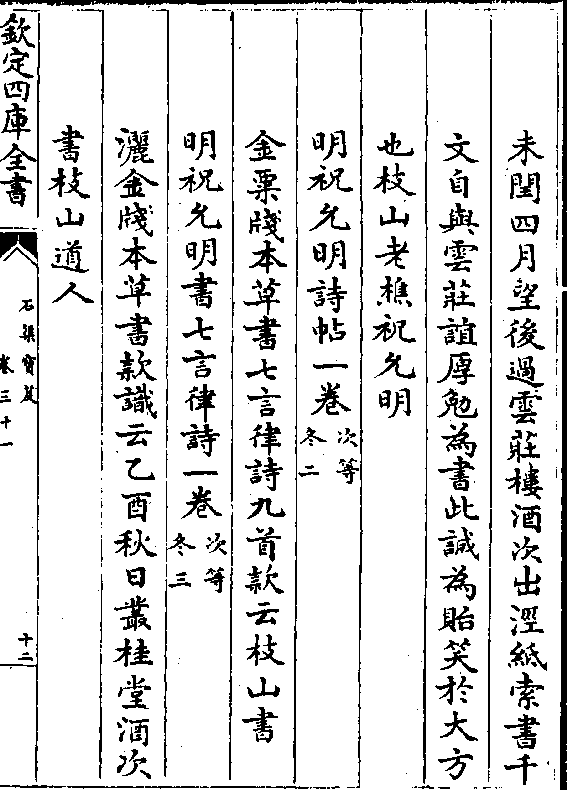 未閏四月望後過雲莊樓酒次出涇紙索書千
文自與雲莊誼厚勉為書此誠為貽笑於大方
也枝山老樵祝允明
明祝允明詩帖一卷次等冬二
金粟牋本草書七言律詩九首款云枝山書
明祝允明書七言律詩一卷次等冬三
灑金牋本草書款識云乙酉秋日叢桂堂酒次
書枝山道人
欽定四庫全書
石渠寶笈
卷三十一
十二